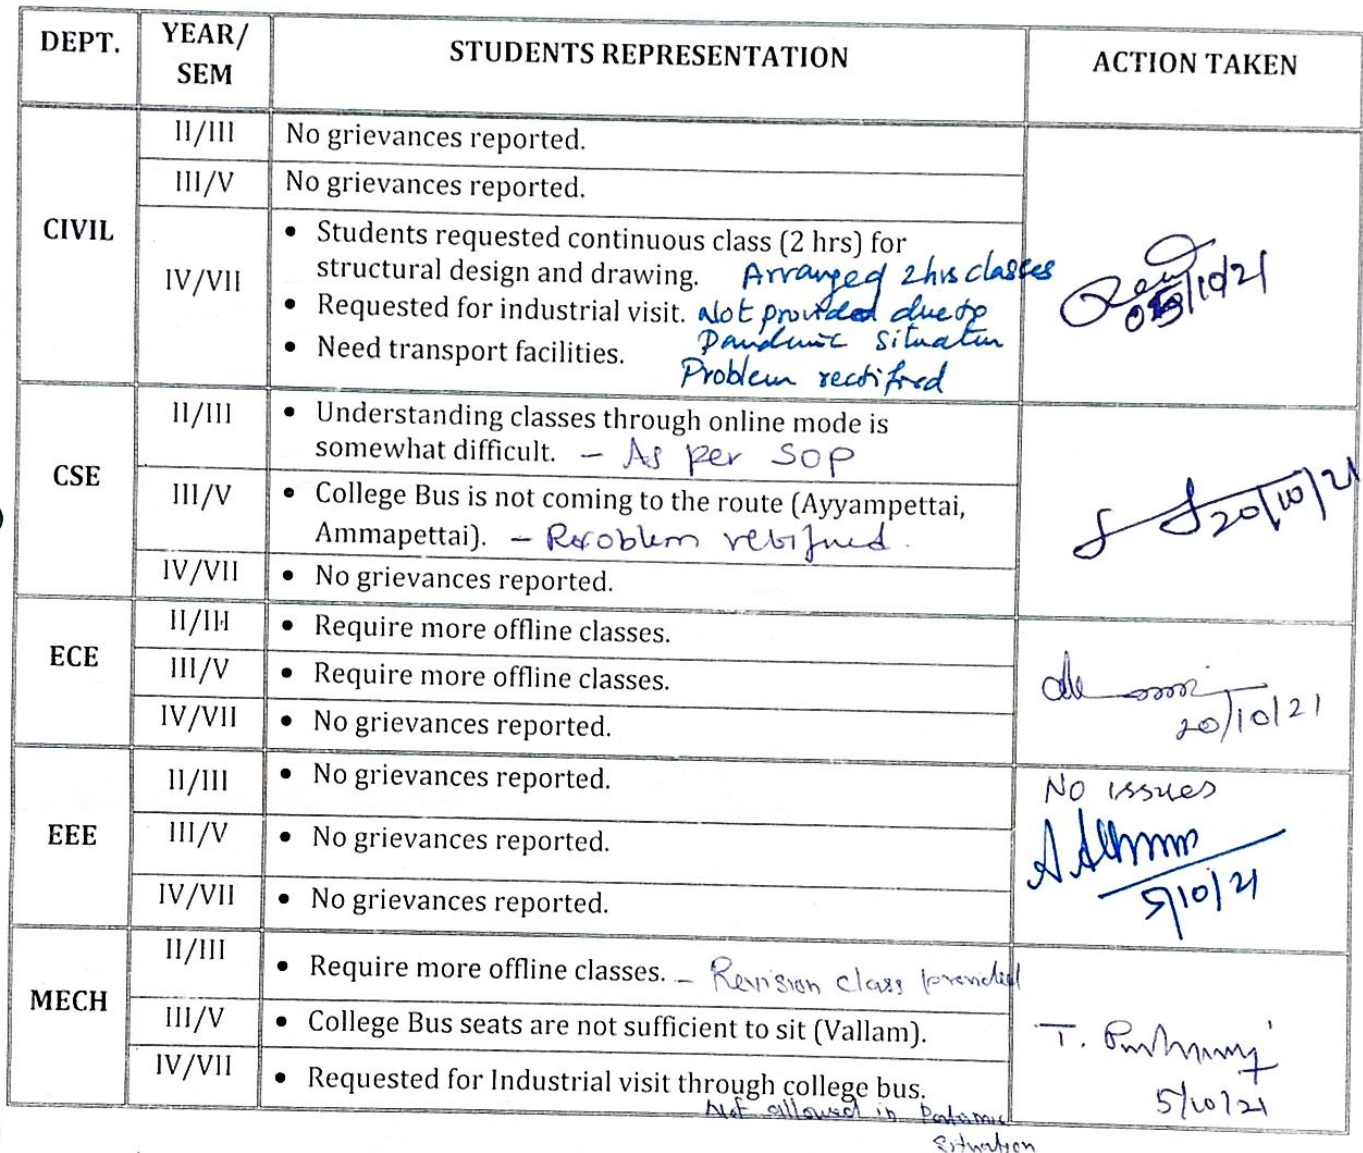 DEPT. YEAR/ SEM STUDENTS REPRESENTATION ACTION TAKEN
CIVIL
II/III No grievances reported.
III/V No grievances reported.
IV/VII
• Students requested continuous class (2 hrs) for
structural design and drawing. Arranged 2hrs classes
• Requested for industrial visit. Not provided due to
Pandemic situation
• Need transport facilities.
Problem rectified
/10/21
CSE
II/III • Understanding classes through online mode is
somewhat difficult. – As per SOP
III/V • College Bus is not coming to the route (Ayyampettai,
Ammapettai). – Problem
IV/VII • No grievances reported.
20/10/21
ECE
II/III • Require more offline classes.
III/V • Require more offline classes.
IV/VII • No grievances reported.
20/10/21
EEE
II/III • No grievances reported.
III/V • No grievances reported.
IV/VII • No grievances reported.
No issues
5/10/21
MECH
II/III • Require more offline classes. – Revision class provided
III/V • College Bus seats are not sufficient to sit (Vallam).
IV/VII • Requested for Industrial visit through college bus.
Not allowed in
situation
T.
5/10/21